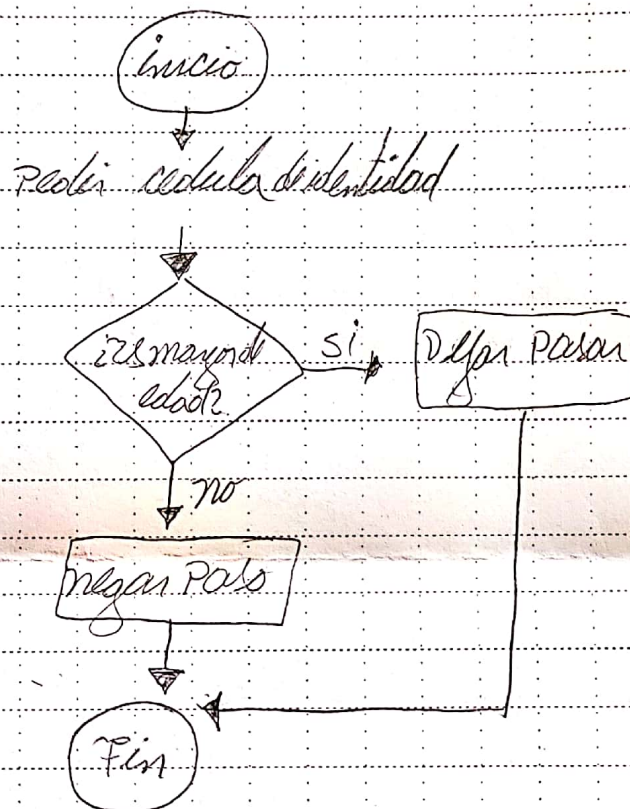 inicio
Pedir cedula de identidad
¿Es mayor de
edad?
si
Dejar Pasar
no
negar Paso
Fin